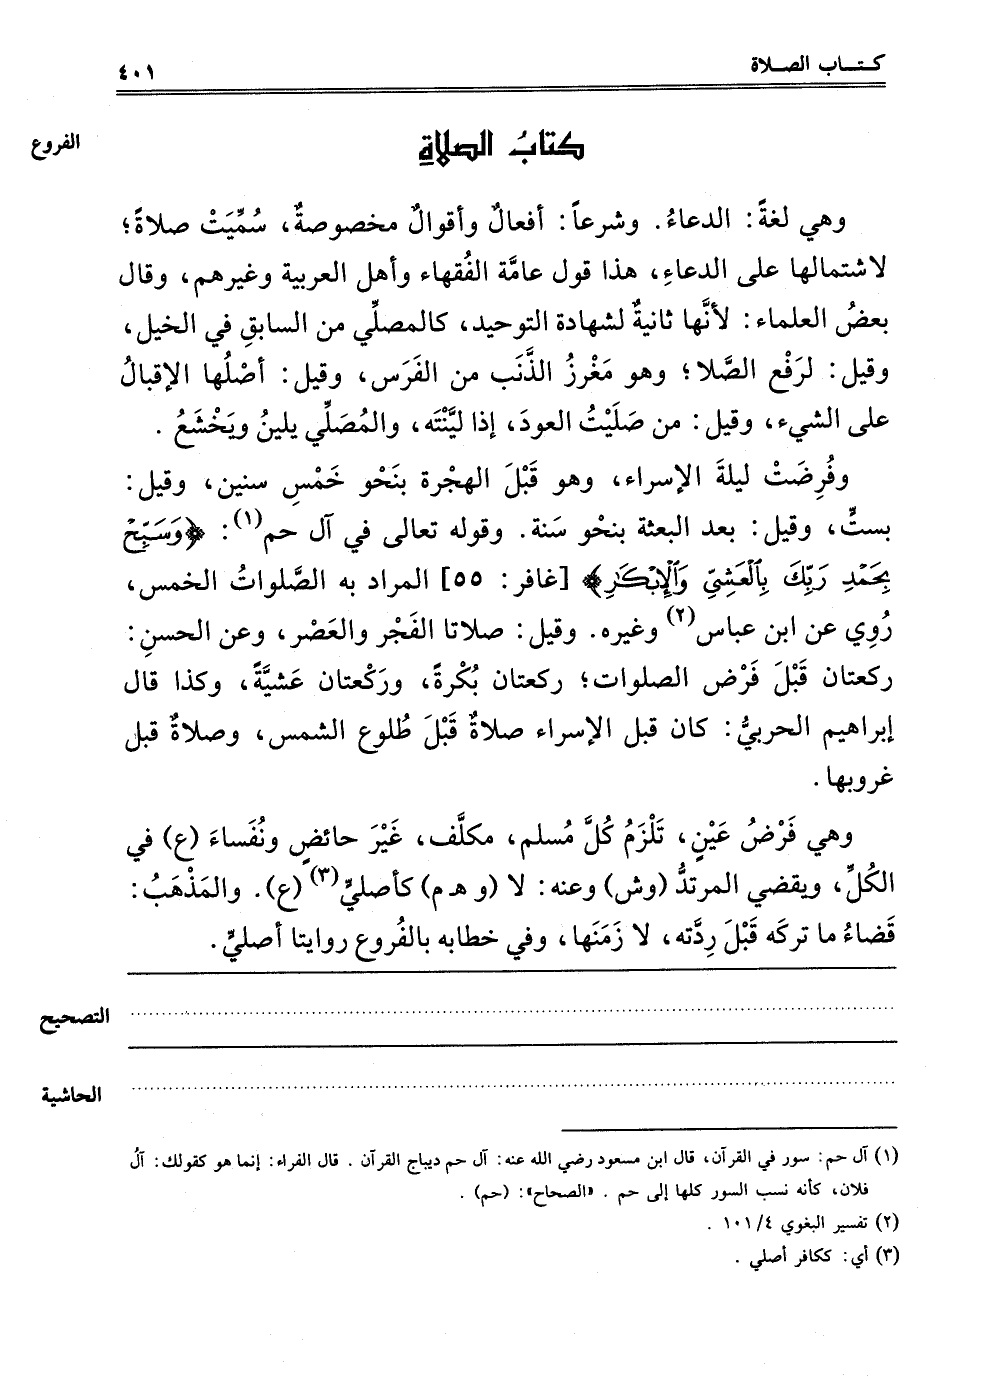 كـتـــاب الصـــلاة
٤٠١
الفروع
كتابُ الصلاةِ
وهي لغةً: الدعاءُ. وشرعاً: أفعالٌ وأقوالٌ مخصوصةٌ، سُمِّيَتْ صلاةً؛
لاشتمالها على الدعاءِ، هذا قول عامَّة الفُقهاء وأهل العربية وغيرهم، وقال
بعضُ العلماء: لأنَّها ثانيةٌ لشهادة التوحيد، كالمصلِّي من السابقِ في الخيل،
وقيل: لرَفْع الصَّلا؛ وهو مَغْرزُ الذَّنَب من الفَرَس، وقيل: أصْلُها الإقبالُ
على الشيء، وقيل: من صَلَيْتُ العودَ، إذا ليَّنْتَه، والمُصَلِّي يلينُ ويَخْشَعُ .
وفُرِضَتْ ليلةَ الإسراء، وهو قَبْلَ الهجْرة بنَحْو خَمْسِ سنين، وقيل:
بستٍّ، وقيل: بعد البعثة بنحْو سَنة. وقوله تعالى في آل حم(١): ﴿وَسَبِّحْ
بِحَمْدِ رَبِّكَ بِٱلْعَشِيِّ وَٱلْإِبْكَٰرِ﴾ [غافر: ٥٥] المراد به الصَّلواتُ الخمس،
رُوِي عن ابن عباس(٢) وغيره. وقيل: صلاتا الفَجْر والعَصْر، وعن الحسنِ:
ركعتان قَبْلَ فَرْض الصلوات؛ ركعتان بُكْرةً، ورَكْعتان عَشيَّةً، وكذا قال
إبراهيم الحربيُّ: كان قبل الإسراء صلاةٌ قَبْلَ طُلوع الشمس، وصلاةٌ قبل
غروبها.
وهي فَرْضُ عَيْنٍ، تَلْزَمُ كُلَّ مُسلم، مكلَّف، غَيْرَ حائضٍ ونُفَساءَ (ع) في
الكُلِّ، ويقضي المرتدُّ (وش) وعنه: لا (و هـ م) كأصليٍّ(٣) (ع). والمَذْهَبُ:
قَضاءُ ما تركَه قَبْلَ رِدَّته، لا زَمَنَها، وفي خطابه بالفُروع روايتا أصليٍّ.
التصحيح
الحاشية
(١) آل حم: سور في القرآن، قال ابن مسعود رضي الله عنه: آل حم ديباج القرآن . قال الفراء: إنما هو كقولك: آلُ
فلان، كأنه نسب السور كلها إلى حم . «الصحاح»: (حم) .
(٢) تفسير البغوي ٤/ ١٠١ .
(٣) أي: ككافر أصلي .